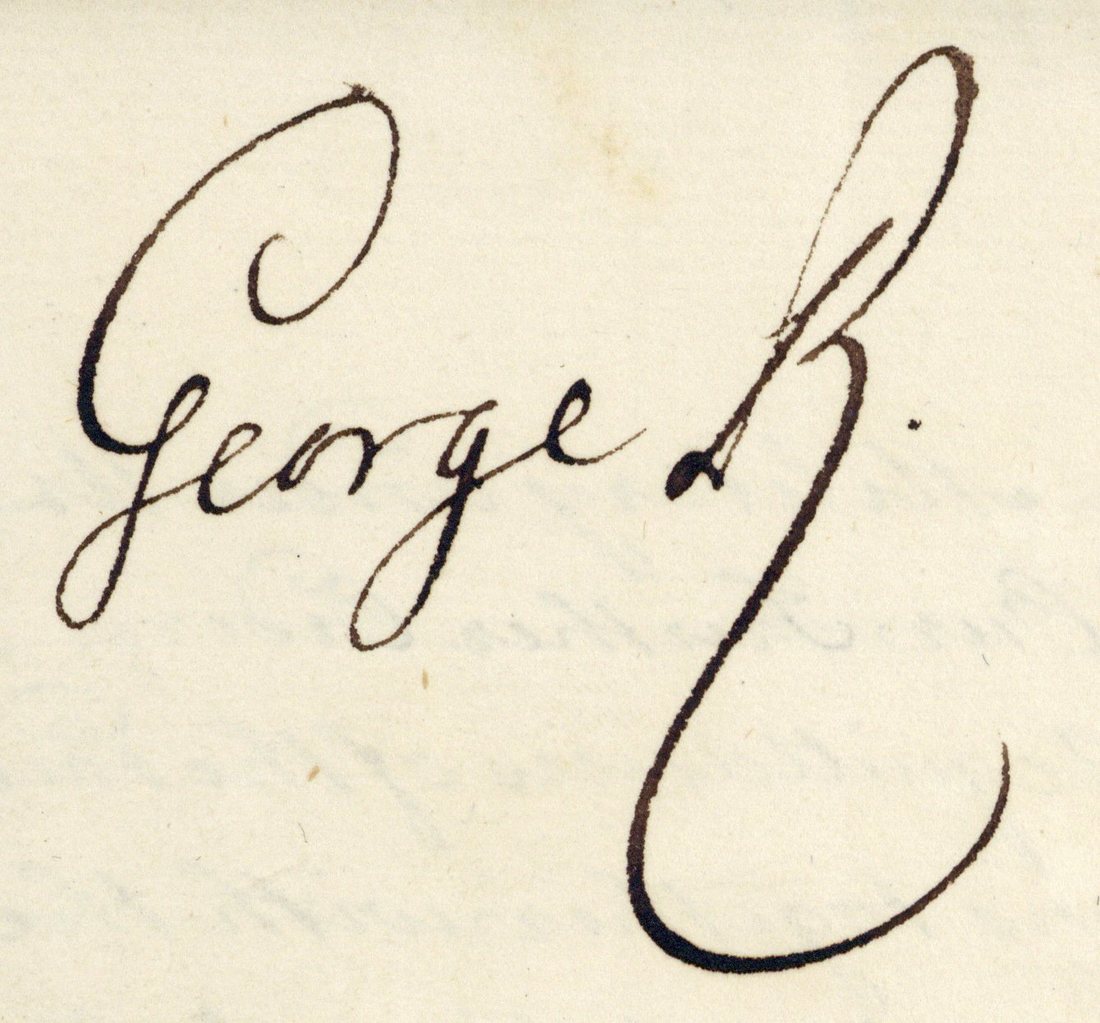 George R.